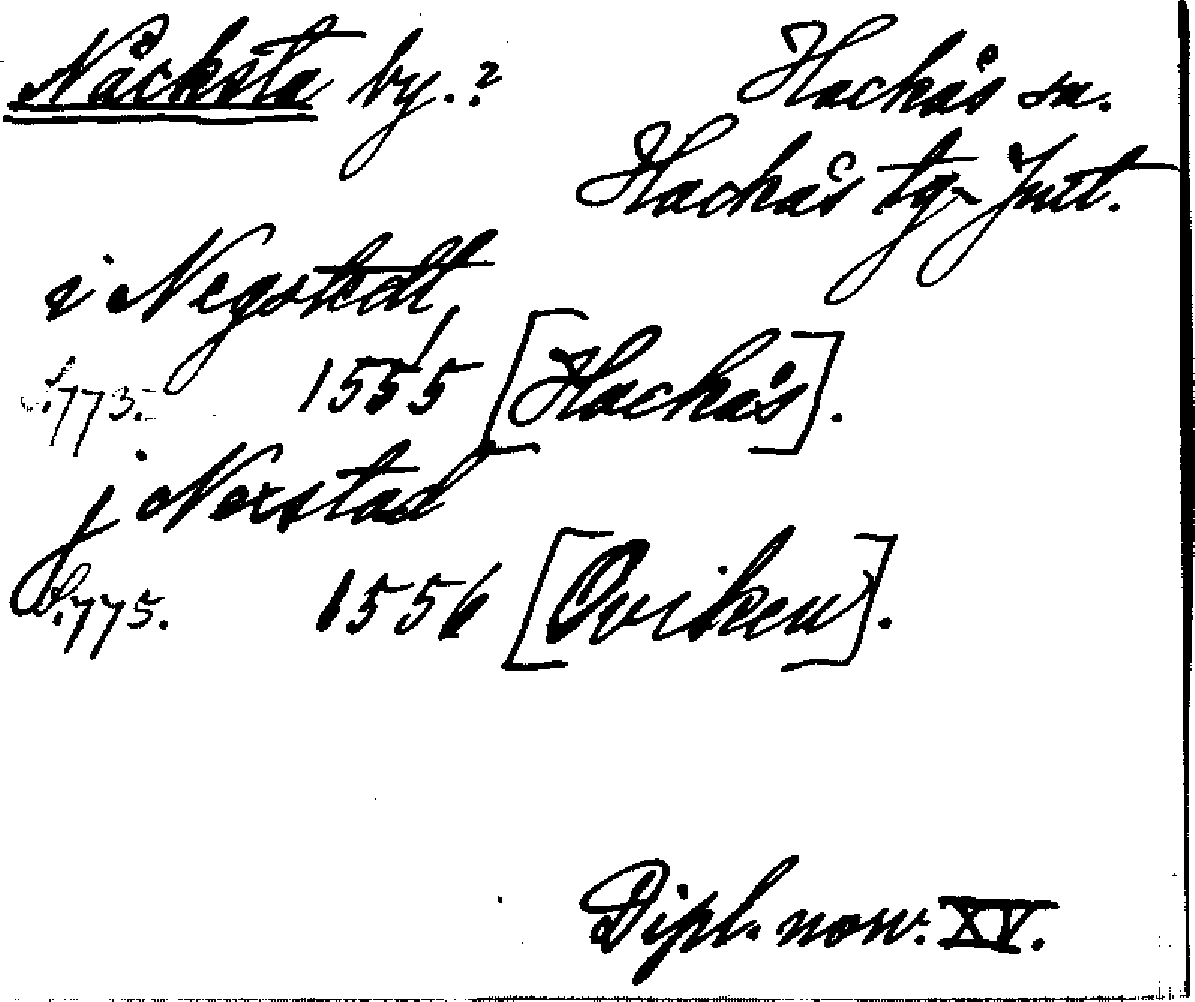 Näcksta by.? Hackås sn.
Hackås tg. Jmt.
i Negstedt,
S.773. 1555 [Hackås].
j Nerstad
S.775. 1556 [Oviken].
Dipl. norv. XV.